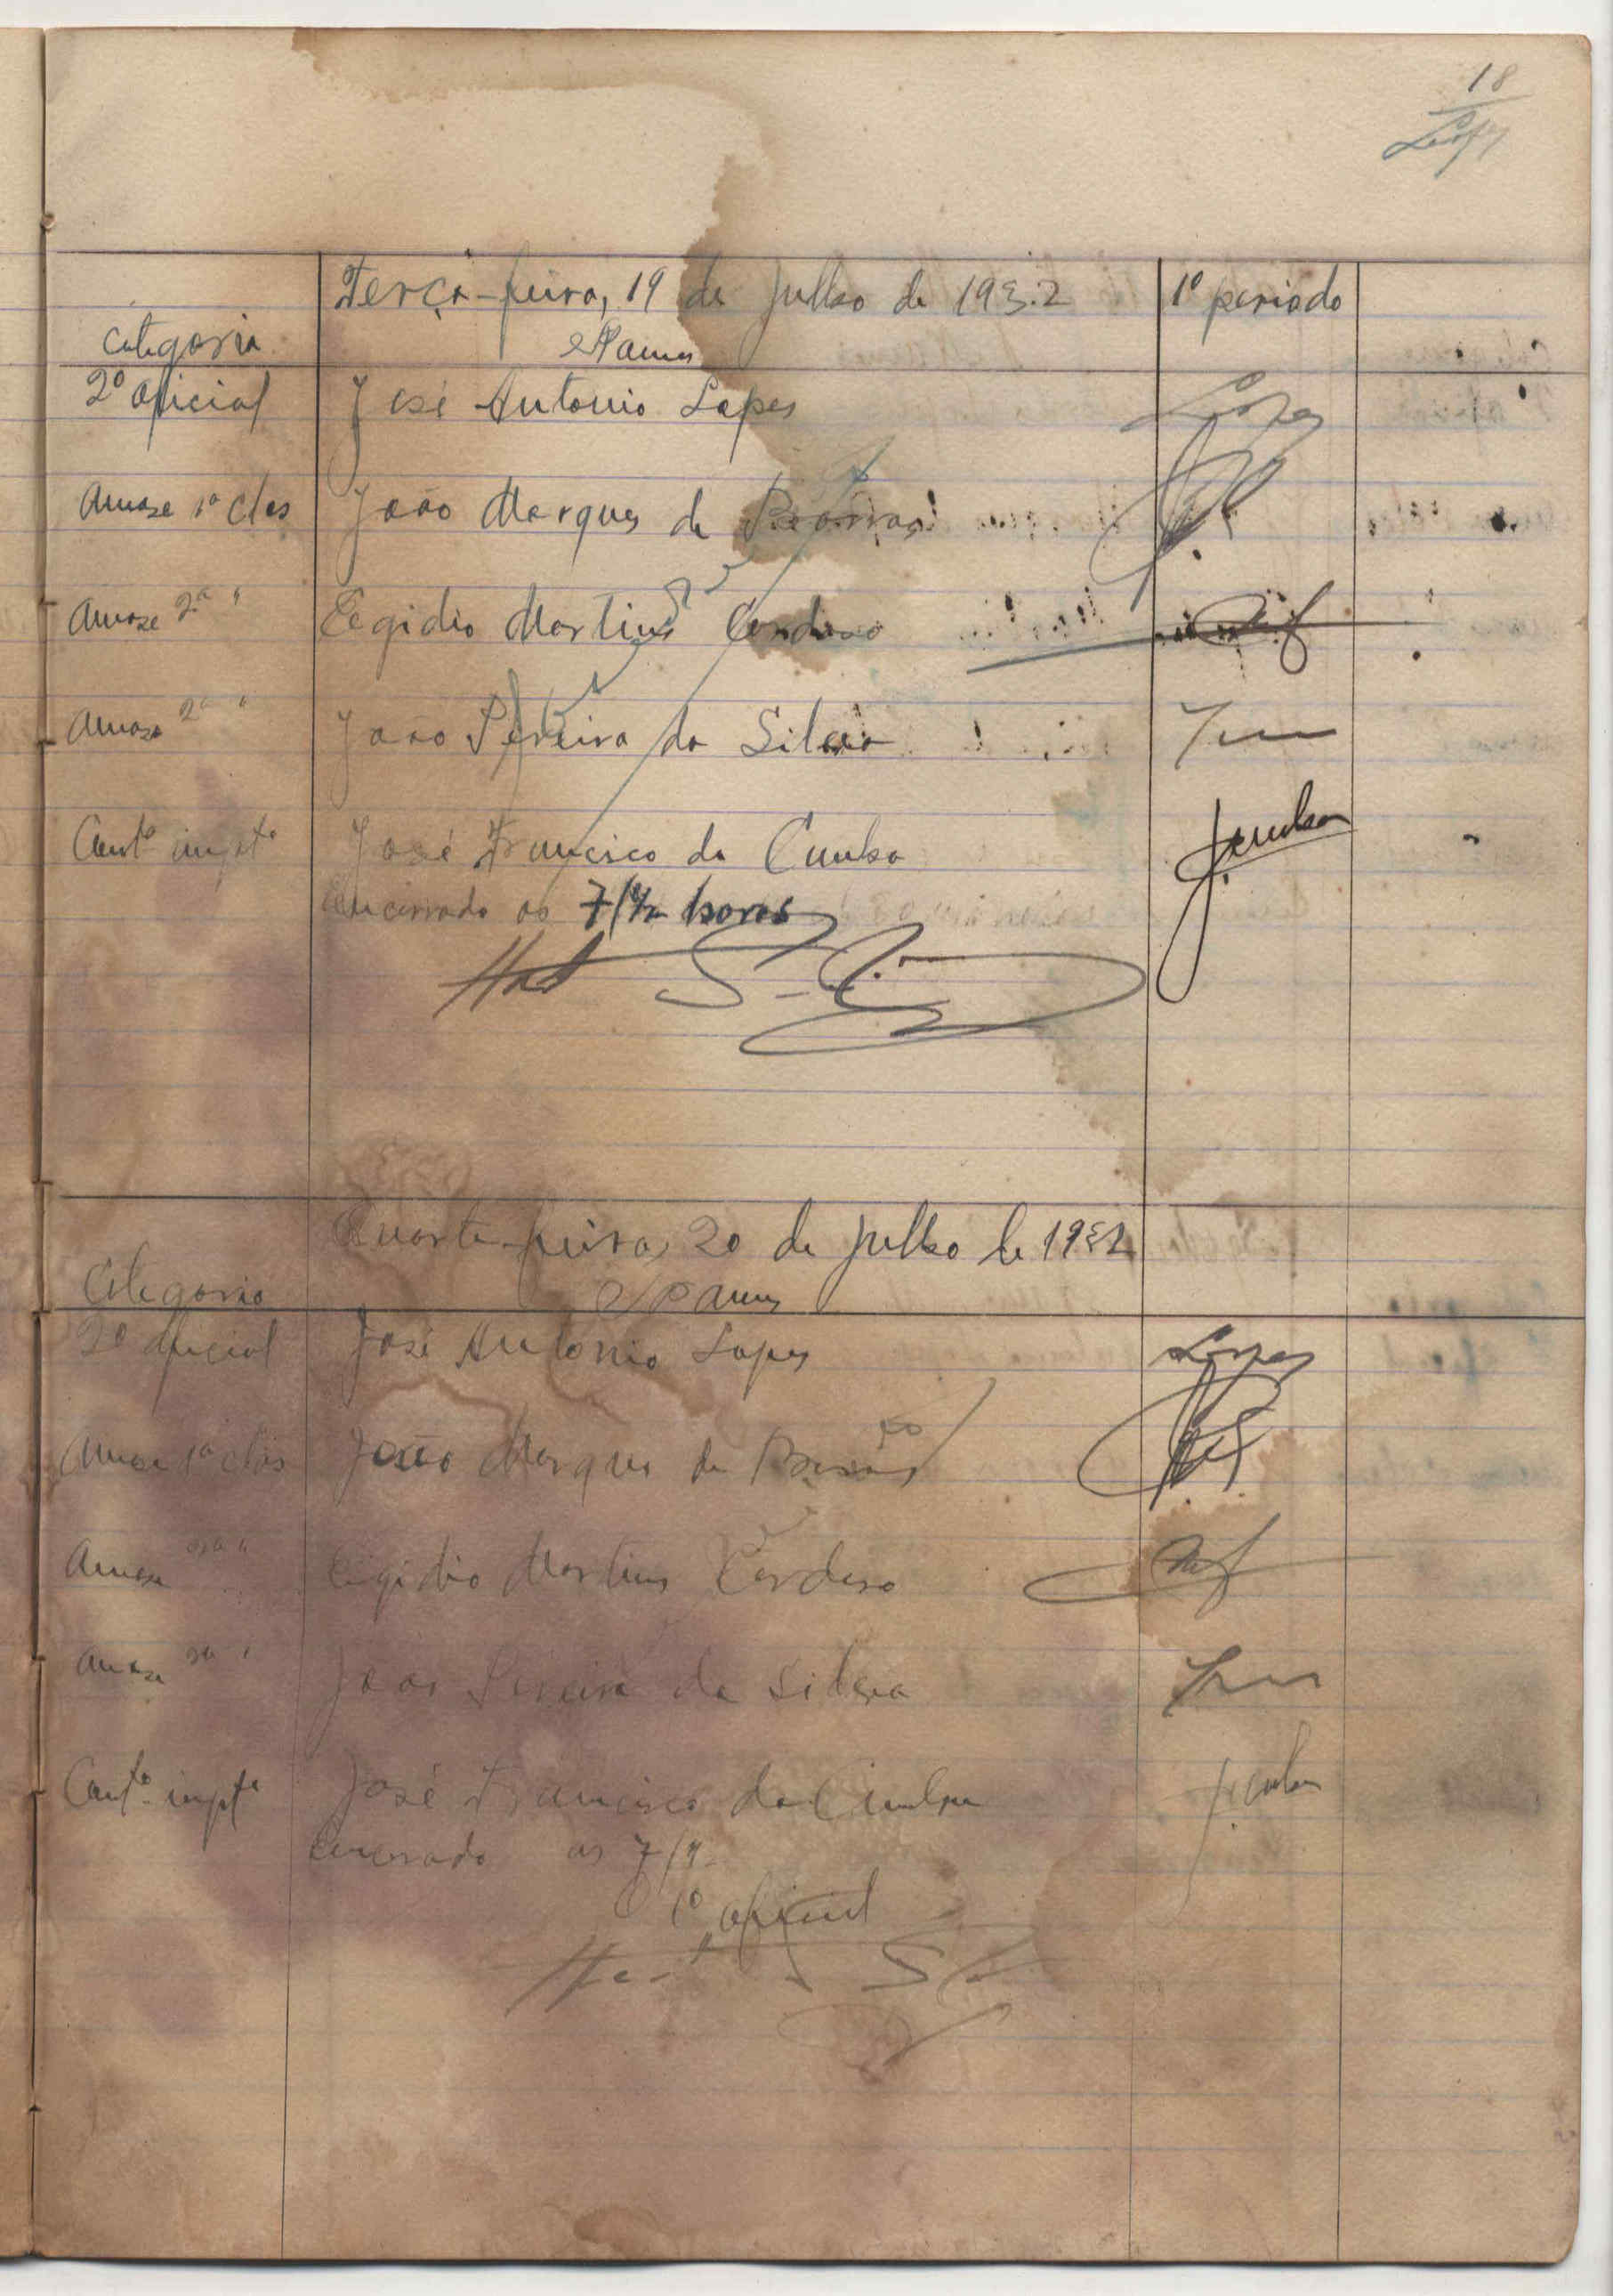 18
Lopes
Terça-feira, 19 de Julho de 1932 1º periodo
Categoria Nomes
2º oficial José Antonio Lopes Lopes
Amase 1ª clas João Marques de Barros
Amase 2ª " Egidio Martins Cardoso
Amase 2ª " João Pereira da Silva
Contº impt° José Francisco da Cunha JCunha
Encerrado as 7/½ horas
Quarta-feira, 20 de Julho de 1932
Categoria Nomes
2º oficial José Antonio Lopes Lopes
Amase 1ª clas João Marques de Barros
Amase 2ª " Egidio Martins Cardoso
Amase 2ª " João Pereira da Silva
Contº impt° José Francisco da Cunha JCunha
Encerrado as 7/½
1º oficial